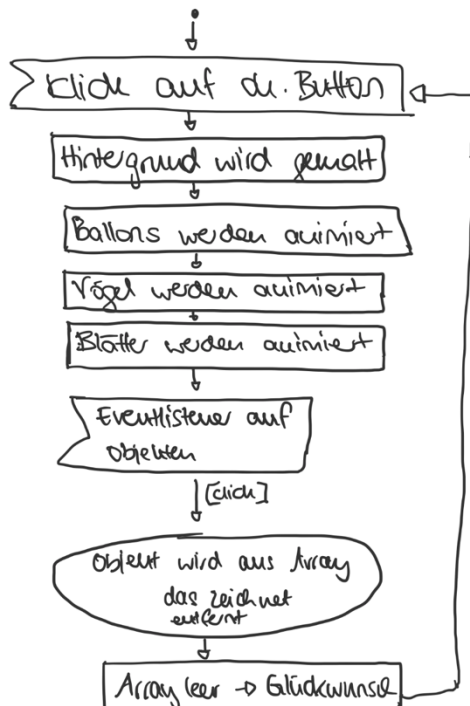 Klick auf du. Button
Hintergrund wird gemalt
Ballons werden animiert
Vögel werden animiert
Blätter werden animiert
Eventlistener auf
Objekten
[click]
Objekt wird aus Array
das zeichnet
entfernt
Array leer → Glückwunsch